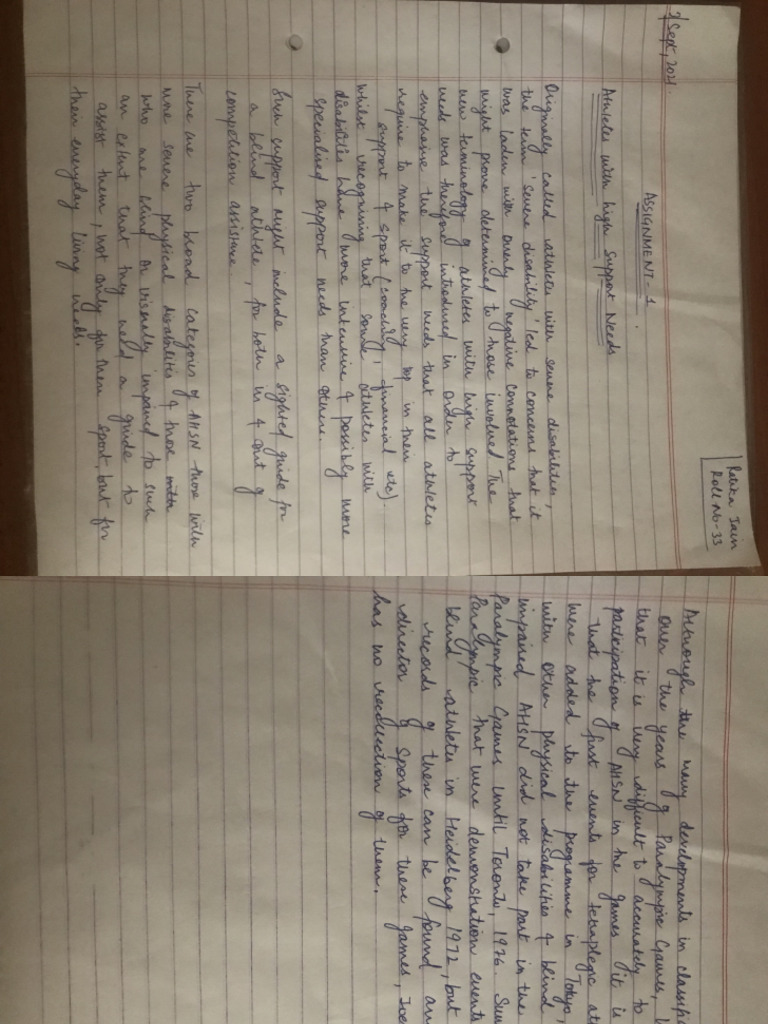 2 Sept, 2021.
Ritika Jain
Roll No-33
ASSIGNMENT-1
Athletes with high Support Needs
Originally called athletes with severe disabilities,
the term 'severe disability' led to concerns that it
was laden with overly negative connotations that
might prove determined to those involved The
new terminology of athletes with high support
needs was therefore introduced in order to
emphasise the support needs that all athletes
require to make it to the very top in their
support & sport (coaching, financial etc).
whilst recognising that some athletes with
disabilities have more intensive & possibly more
specialised support needs than others.
Such support might include a sighted guide for
a blind athlete, for both in & out of
competition assistance.
There are two broad categories of AHSN those with
more severe physical disabilities & those with
who are blind or visually impaired to such
an extent that they need a guide to
assist them, not only for their sport, but for
their everyday living needs.
Although the many developments in
over the years of Paralympic Games,
that it is very difficult to accurately to
participation of AHSN in the games it is
that the first events for tetraplegic
were added to the programme in Tokyo,
with other physical disabilities & blind
impaired AHSN did not take part in the
Paralympic Games until Toronto, 1976.
Paralympic that were demonstration events
blind athletes in Heidelberg 1972, but
records of these can be found
director of sports for these games,
has no recollection of them.